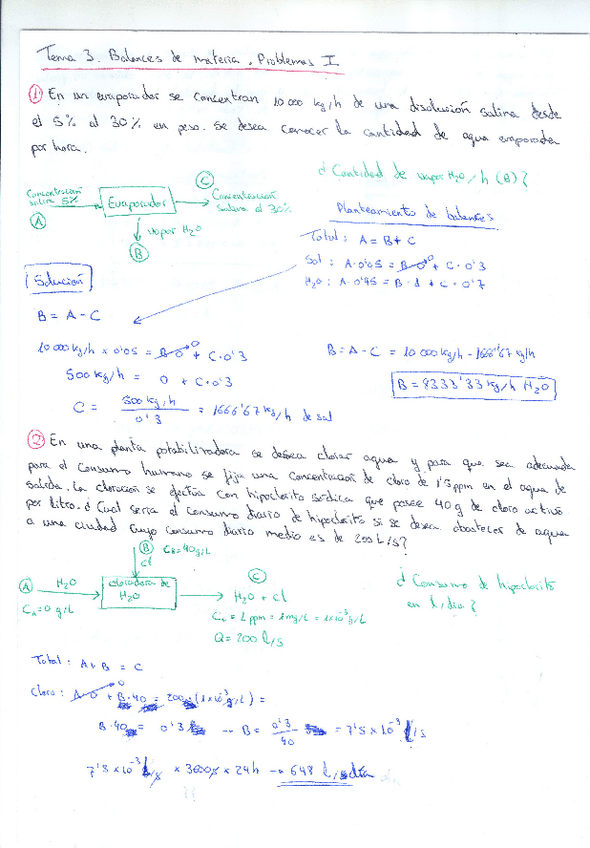 Tema 3. Balances de materia. Problemas I
① En un evaporador se concentran 10 000 kg/h de una disolución salina desde
el 5% al 30% en peso. Se desea conocer la cantidad de agua evaporada
por hora.
¿Cantidad de vapor H₂O/h (B)?
Concentración
salina 5%
A
Evaporador
C
Concentración
salina al 30%
vapor H₂O
B
Planteamiento de balances
Total: A = B + C
Sal: A·0'05 = B·0 + C·0'3
H₂O: A·0'95 = B·1 + C·0'7
Solución
B = A - C
10 000 kg/h x 0'05 = B·0 + C·0'3
500 kg/h = 0 + C·0'3
C = 500 kg/h / 0'3 = 1666'67 kg/h de sal
B = A - C = 10 000 kg/h - 1666'67 kg/h
B = 8333'33 kg/h H₂O
② En una planta potabilizadora se desea clorar agua y para que sea adecuada
para el consumo humano se fija una concentración de cloro de 1'5 ppm en el agua de
salida. La cloración se efectúa con hipoclorito sódico que posee 40 g de cloro activo
por litro. ¿Cual sería el consumo diario de hipoclorito si se desea abastecer de agua
a una ciudad cuyo consumo diario medio es de 200 L/s?
B C_B = 40 g/L
Cl
A H₂O
C_A = 0 g/L
cloradora de
H₂O
C
H₂O + Cl
C_C = 1 ppm = 1 mg/L = 1x10⁻³ g/L
Q = 200 l/s
¿Consumo de hipoclorito
en l/día?
Total: A + B = C
Cloro: A·0 + B·40 = 200·(1x10⁻³ g/L) =
B·40 = 0'3 → B = 0'3 / 40 = 7'5 x 10⁻³ l/s
7'5 x 10⁻³ L/s x 3600s x 24h → 648 l/día